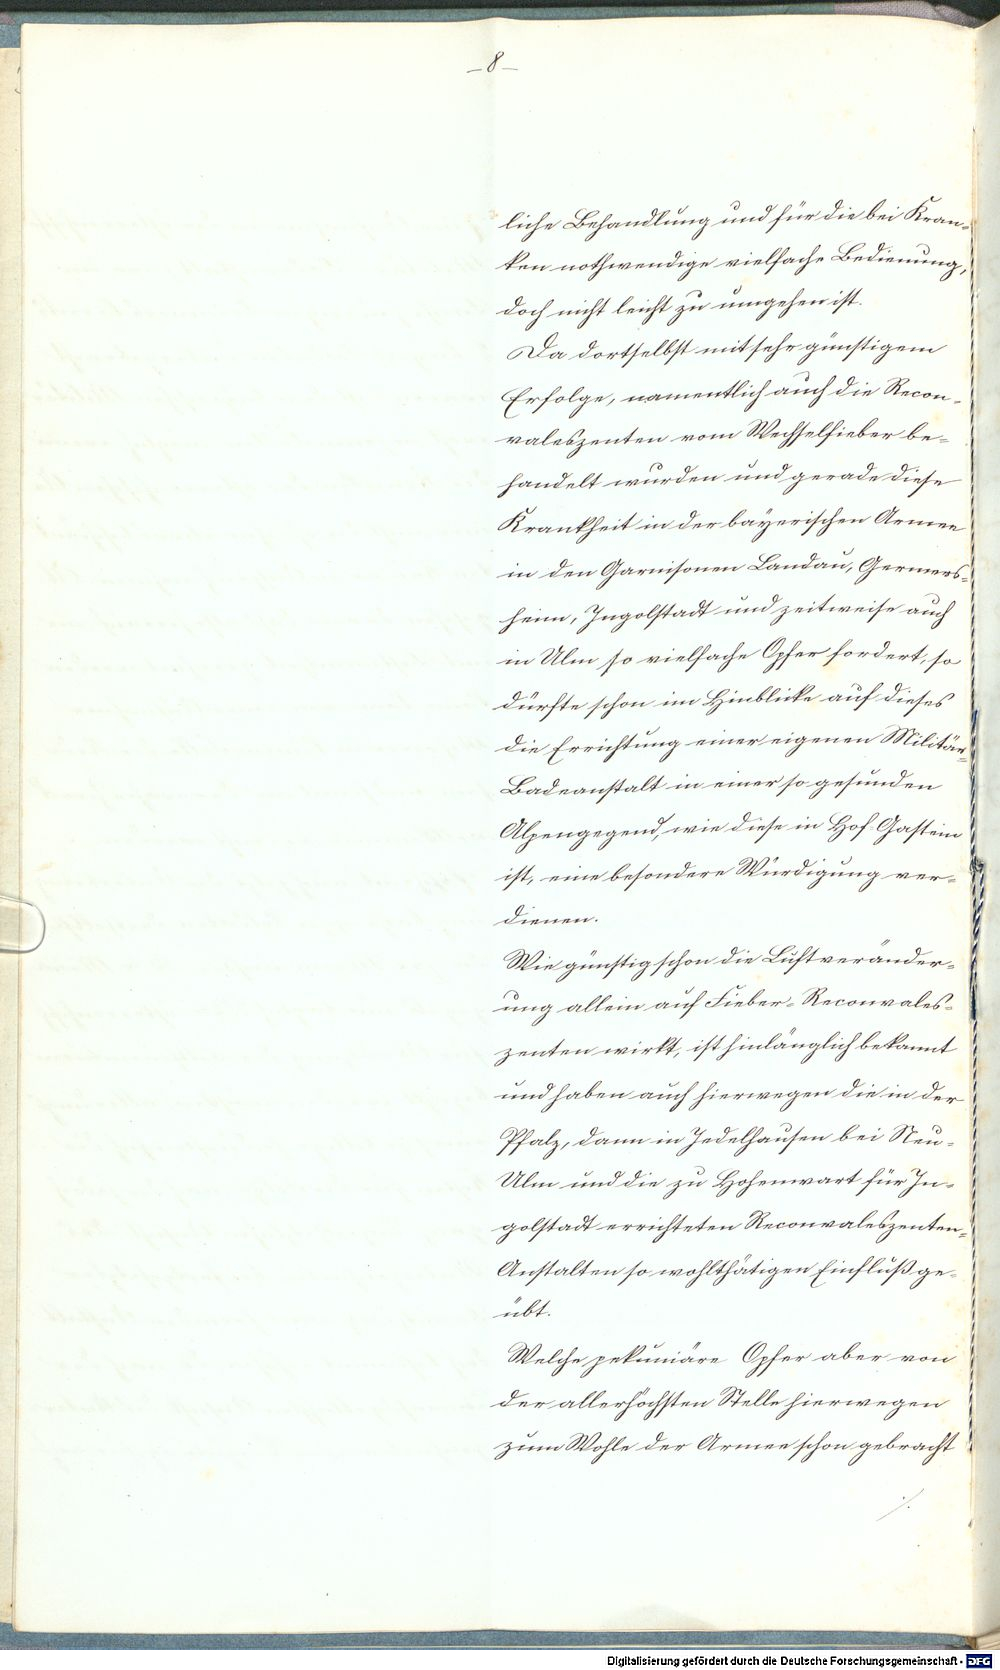 – 8 –
liche Behandlung und für die bei Kran-
ken nothwendige vielfache Bedienung,
doch nicht leicht zu umgehen ist.
Da dortselbst mit sehr günstigem
Erfolge, namentlich auch die Recon-
valeszenten vom Wechselfieber be-
handelt wurden und gerade diese
Krankheit in der bayerischen Armee
in den Garnisonen Landau, Germers-
heim, Ingolstadt und zeitweise auch
in Ulm so vielfache Opfer fordert, so
dürfte schon im Hinblicke auf dieses
die Errichtung einer eigenen Militär-
Badeanstalt in einer so gesunden
Alpengegend, wie diese in Hof-Gastein
ist, eine besondere Würdigung ver-
dienen.
Wie günstig schon die Luftveränder-
ung allein auf Fieber-Reconvales-
zenten wirkt, ist hinlänglich bekannt
und haben auch hierwegen die in der
Pfalz, dann in Jedelhausen bei Neu-
Ulm und die zu Hohenwart für In-
golstadt errichteten Reconvaleszenten-
Anstalten so wohlthätigen Einfluß ge-
übt.
Welche pekuniäre Opfer aber von
der allerhöchsten Stelle hierwegen
zum Wohle der Armee schon gebracht
./.
Digitalisierung gefördert durch die Deutsche Forschungsgemeinschaft - DFG